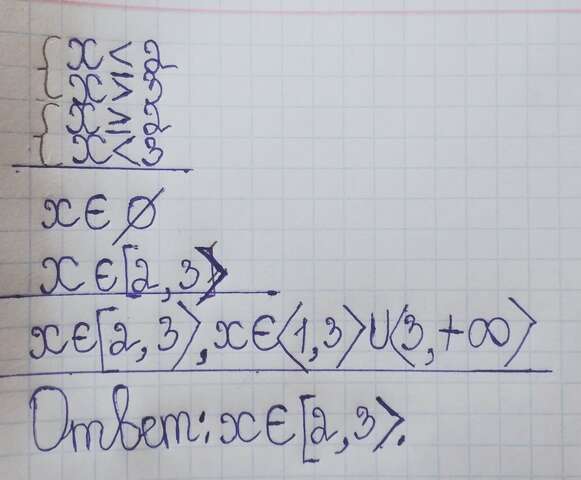 { x < 2
x ≥ 3
{ x ≥ 2
x < 3
x ∈ ∅
x ∈ [2, 3⟩
x ∈ [2, 3⟩, x ∈ ⟨1, 3⟩ ∪ ⟨3, +∞⟩
Ответ: x ∈ [2, 3⟩.